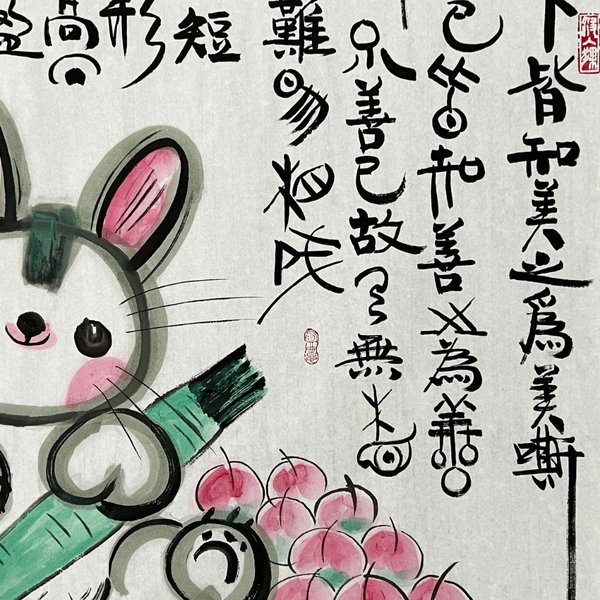 下皆知美之爲美嘶
已皆知善之為善
不善已故有無相
難易相成
短
形
高
盈